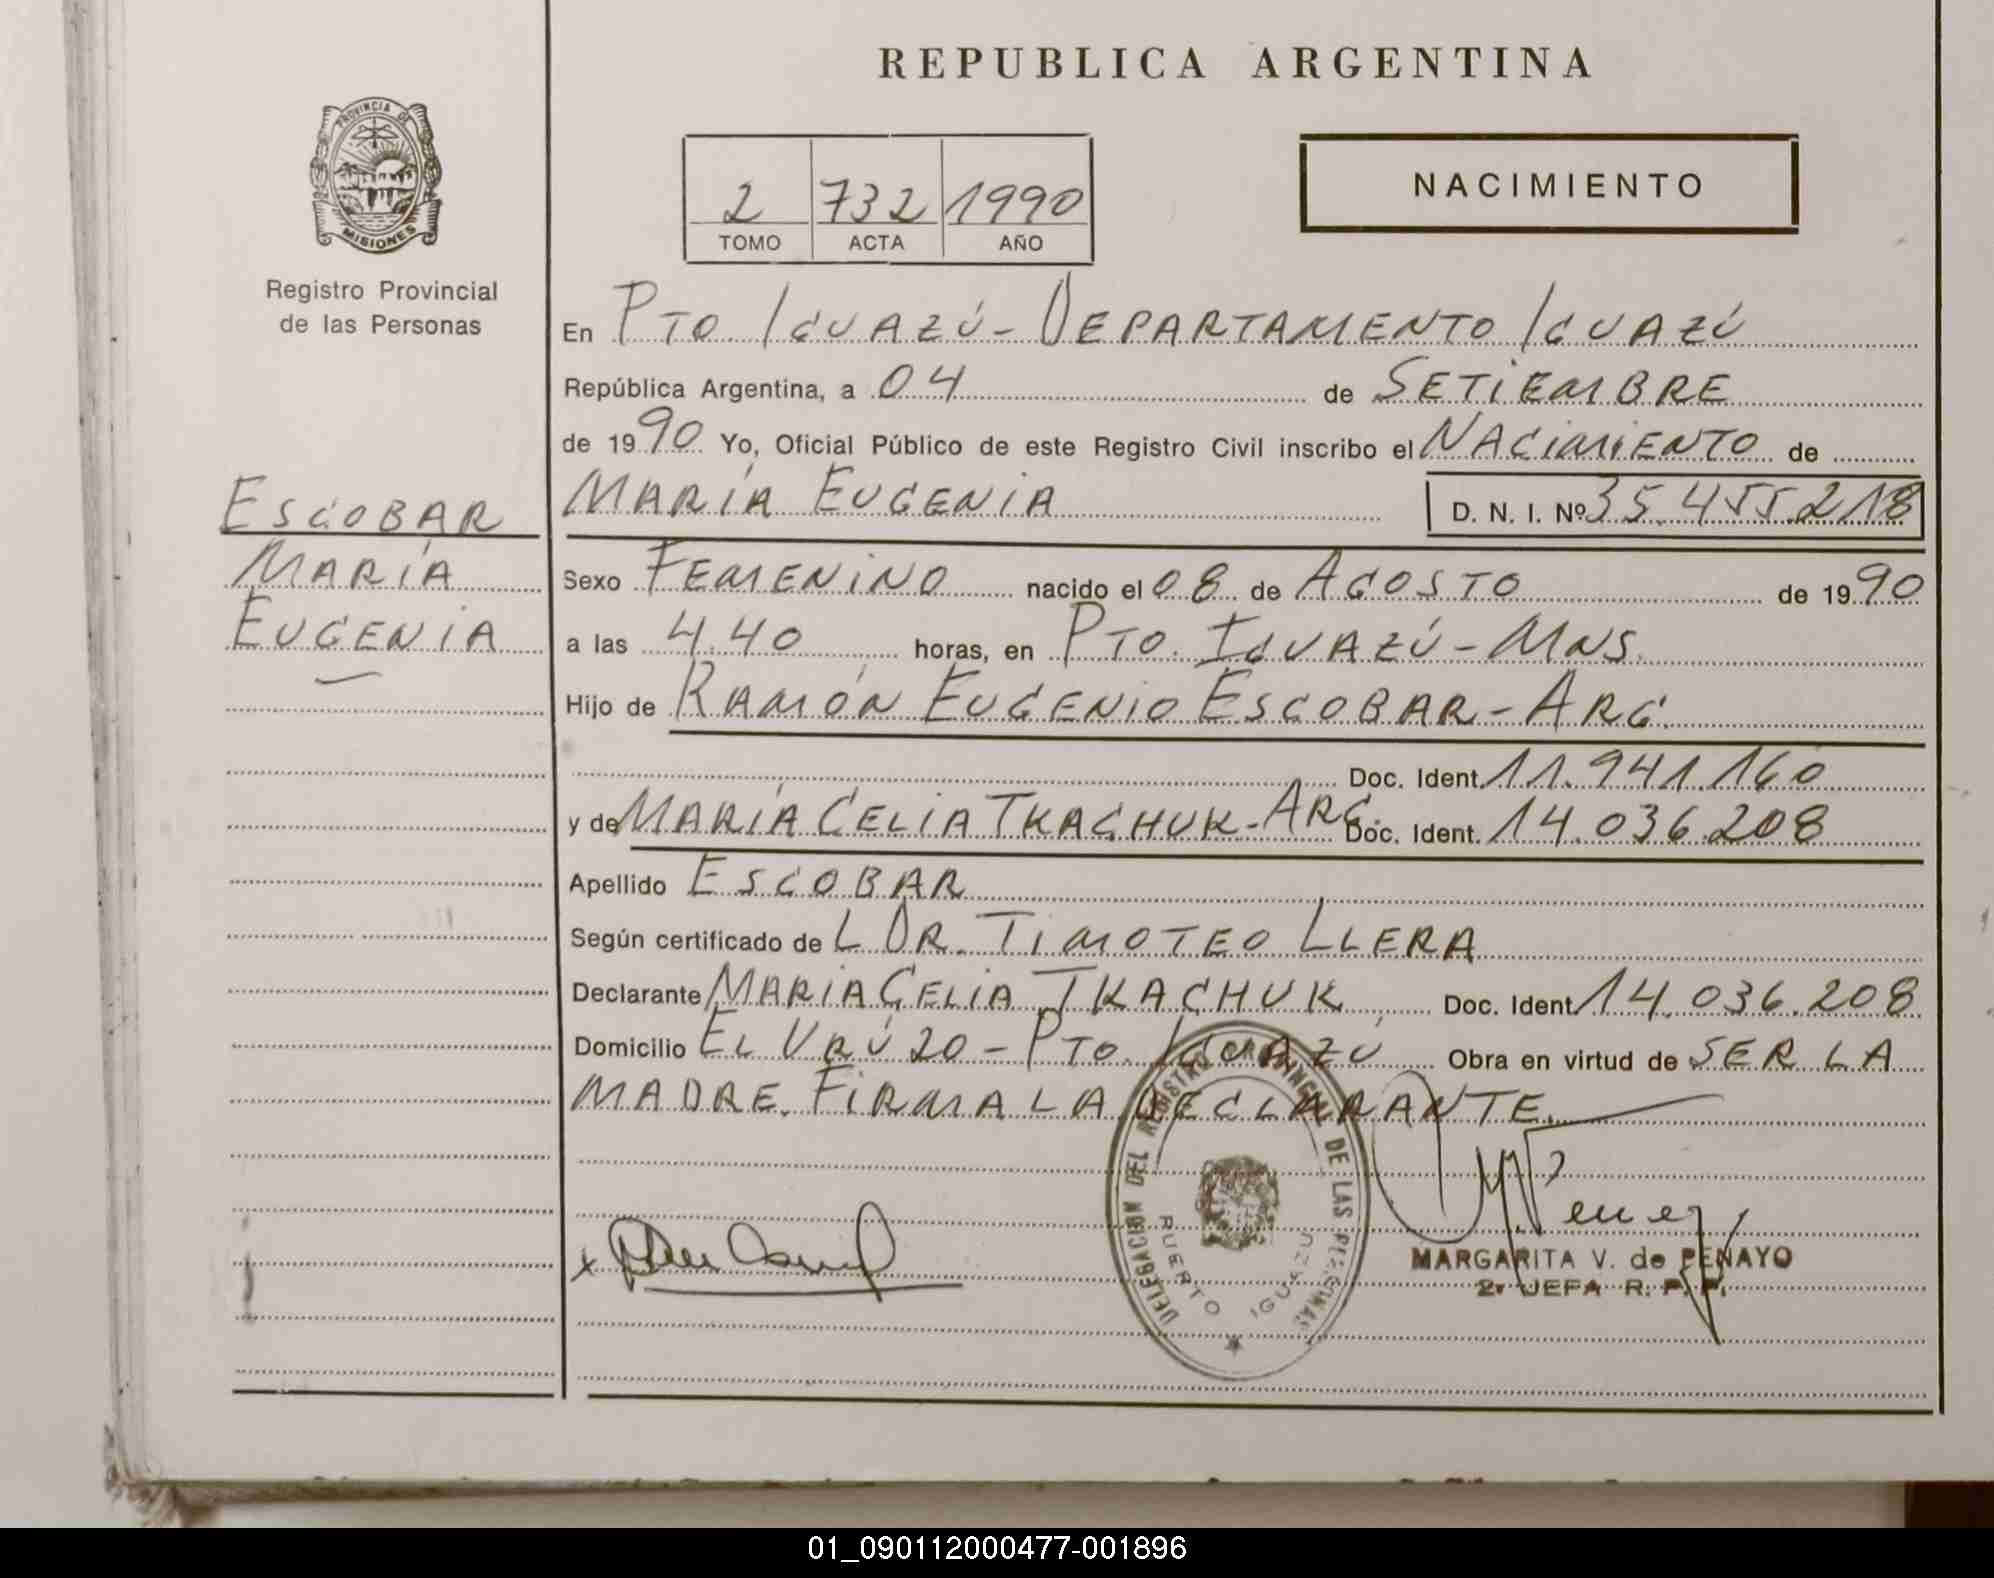 REPUBLICA ARGENTINA
PROVINCIA DE MISIONES
Registro Provincial
de las Personas
2 732 1990
TOMO ACTA AÑO
NACIMIENTO
En PTO. IGUAZÚ - DEPARTAMENTO IGUAZÚ
República Argentina, a 04 de SETIEMBRE
de 1990 Yo, Oficial Público de este Registro Civil inscribo el NACIMIENTO de
ESCOBAR
MARÍA
EUGENIA
MARÍA EUGENIA D. N. I. Nº 35.455.218
Sexo FEMENINO nacido el 08 de AGOSTO de 1990
a las 4.40 horas, en PTO. IGUAZÚ - MNS.
Hijo de RAMÓN EUGENIO ESCOBAR - ARG.
Doc. Ident. 11.941.160
y de MARÍA CELIA TKACHUK - ARG. Doc. Ident. 14.036.208
Apellido ESCOBAR
Según certificado de L DR. TIMOTEO LLERA
Declarante MARÍA CELIA TKACHUK Doc. Ident. 14.036.208
Domicilio EL URÚ 20 - PTO. IGUAZÚ Obra en virtud de SER LA
MADRE. FIRMA LA DECLARANTE.
DELEGACION DEL REGISTRO PROVINCIAL DE LAS PERSONAS
PUERTO IGUAZU
x
MARGARITA V. de PENAYO
2ª JEFA R. P. P.
01_090112000477-001896